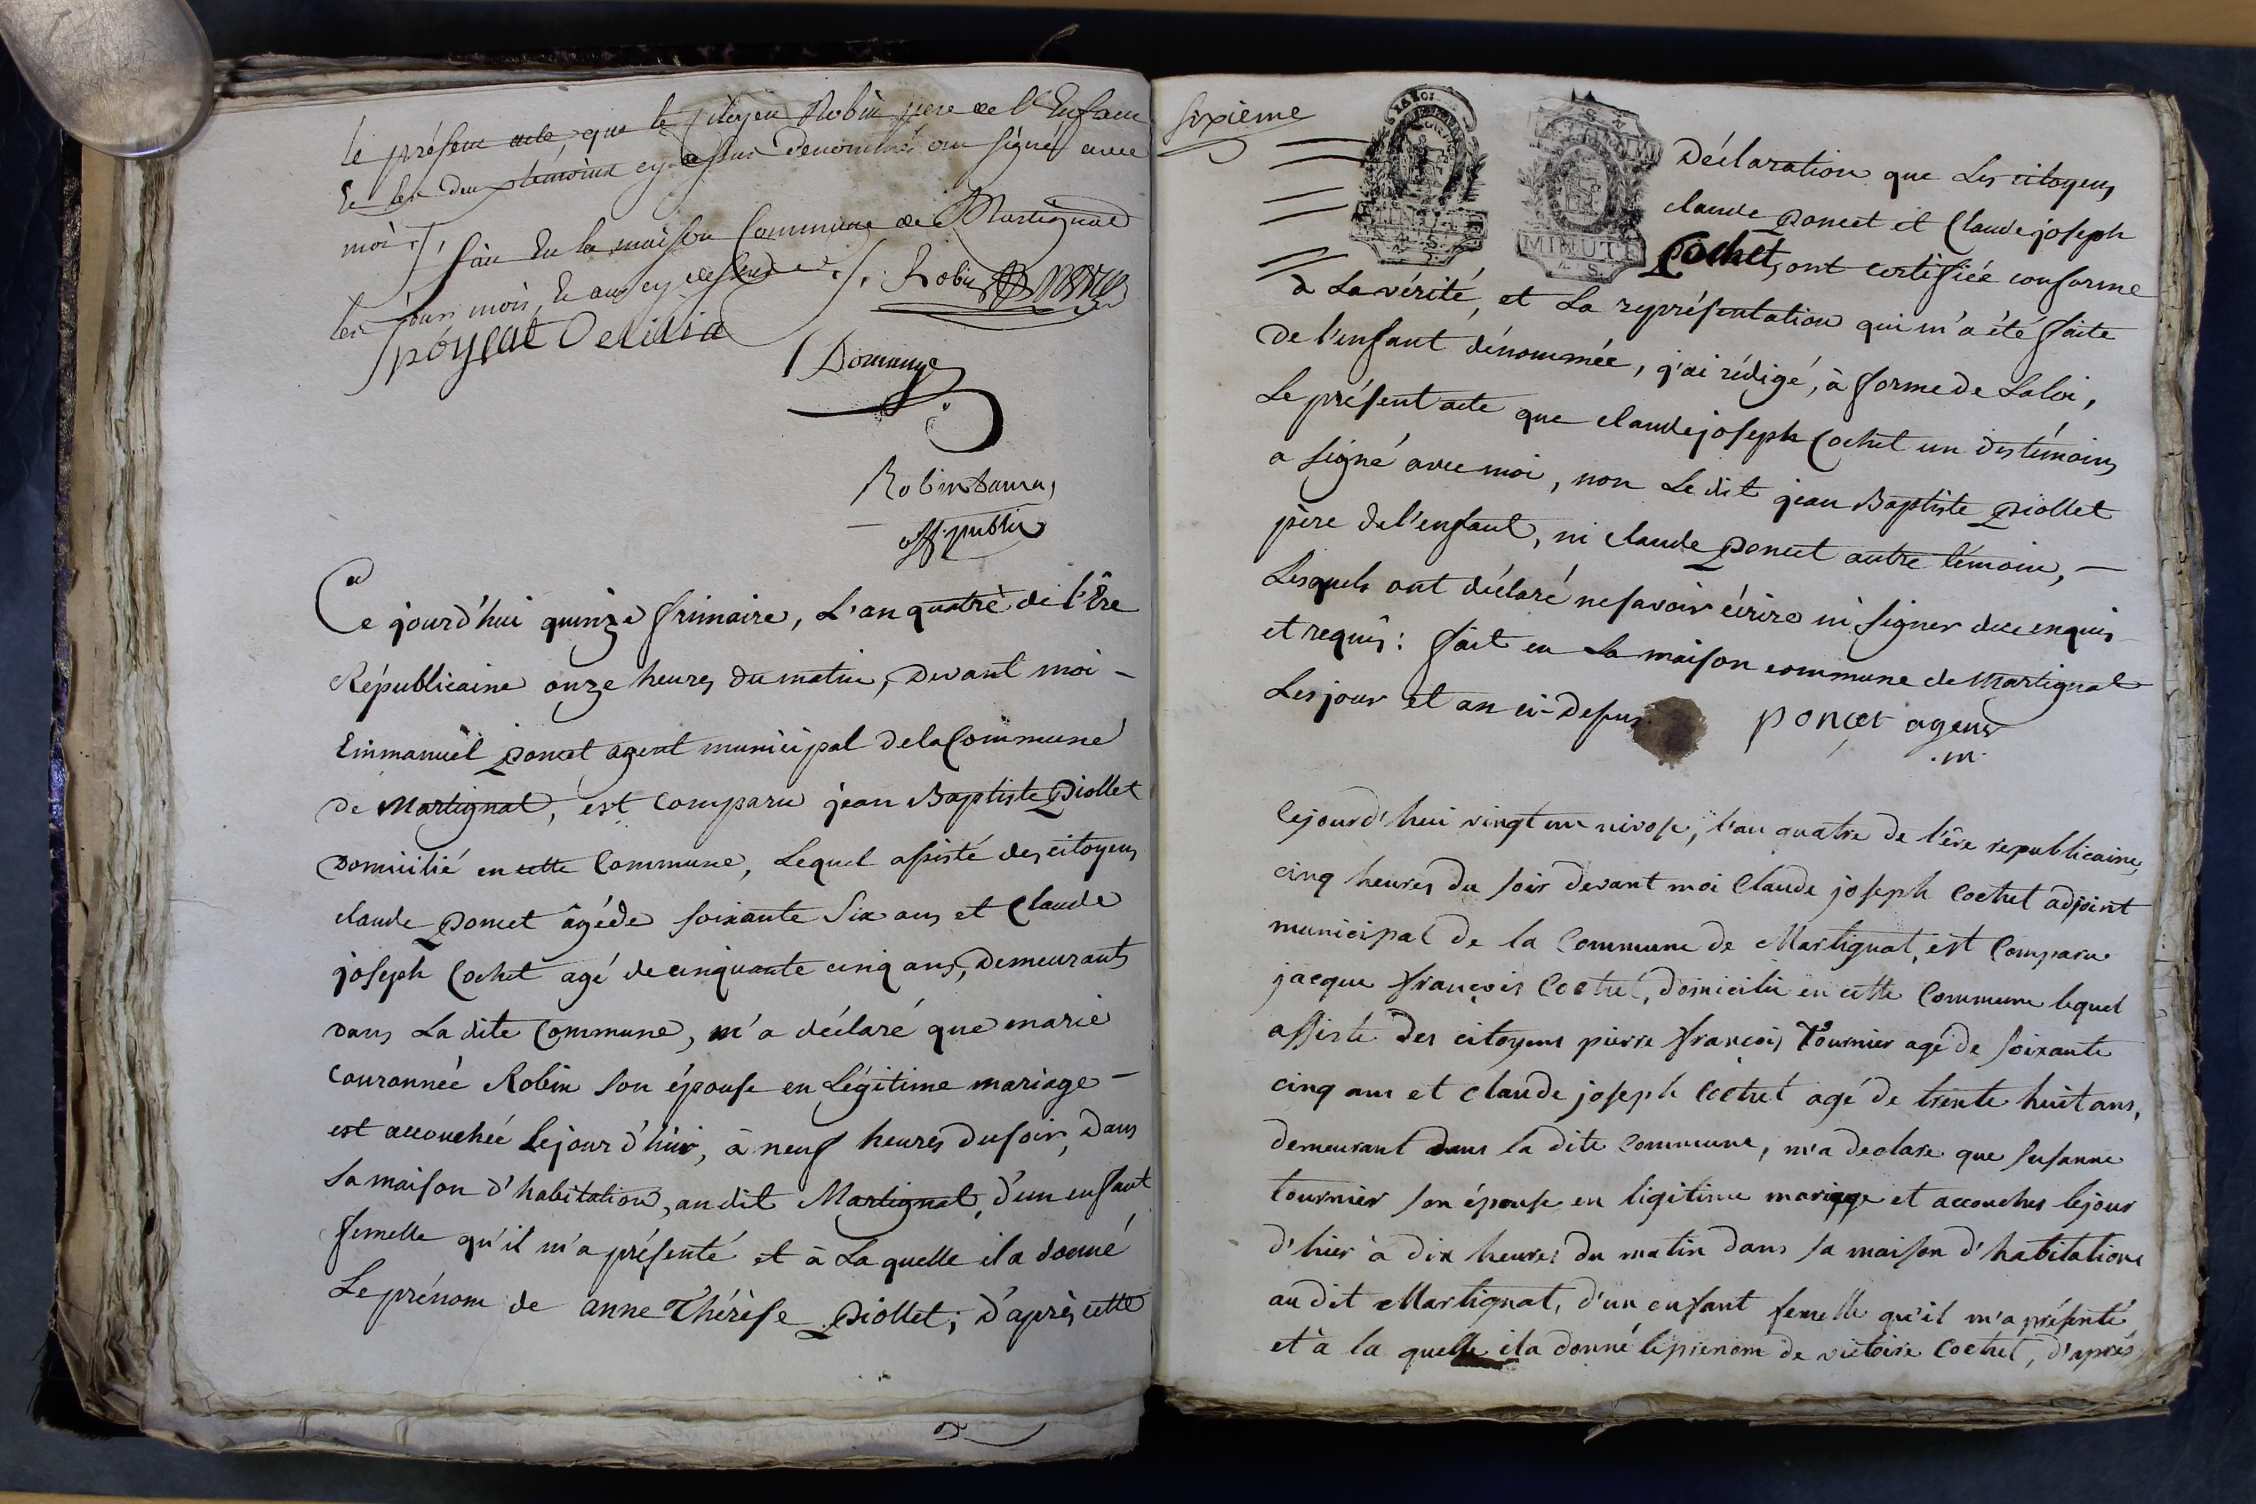 le présent acte, que le Citoyen Robin pere de l'Enfant
Et les deux témoins cy dessus denommés ont signé avec
moi ./.
fait En la maison Commune de Martignat
les jour, mois, Et an cy dessus ./. Robin
Domange
Robin
off. public
Ce jourd'hui quinze frimaire, L'an quatre de l'Ere
Républicaine onze heures du matin, Devant moi –
Emmanuël poncet agent municipal de la Commune
De Martignat, est comparu jean Baptiste Piollet
Domicilié en cette Commune, Lequel assisté des citoyens
claude Poncet âgé de soixante six ans et Claude
joseph Cochet agé de cinquante cinq ans, Demeurants
Dans La dite Commune, m'a déclaré que marie
Couronnée Robin son épouse en Légitime mariage –
est accouchée Le jour d'hier, à neuf heures du soir, Dans
sa maison d'habitation, au dit Martignat, d'un enfant
femelle qu'il m'a présenté et à La quelle il a donné
Le prénom de anne Thérèse Piollet; D'après cette
sixième
MINUTE
Déclaration que Les citoyens
claude Poncet et Claude joseph
Cochet, ont certifiée conforme
à La vérité, et La représentation qui m'a été faite
De l'enfant dénommée, j'ai rédigé, à forme de La loi,
Le présent acte que claude joseph Cochet un des témoins
a signé avec moi, non Le dit jean Baptiste Piollet
père de l'enfant, ni claude Poncet autre témoin, –
Lesquels ont déclaré ne savoir écrire ni signer de ce enquis
et requis: fait en La maison commune de Martignat
Les jour et an ci-Dessus poncet agent
.m.
Cejourd'hui vingt un nivose, l'an quatre de l'ère republicaine,
cinq heures du soir devant moi Claude joseph Cochet adjoint
municipal de la Commune de Martignat, est Comparu
jacque françois Cochet, domicilié en cette Commune lequel
assisté des citoyens pierre françois Tournier agé de soixante
cinq ans et claude joseph Cochet agé de trente huit ans,
demeurant dans la dite Commune, m'a declare que susanne
tournier son épouse en ligitime mariage et accouchee lejour
d'hier à dix heures du matin dans sa maison d'habitation
au dit Martignat, d'un enfant femelle qu'il m'a présenté
et à la quelle il a donné le prenom de victoire Cochet, d'après